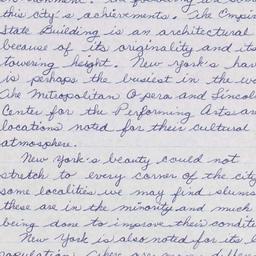 this city's achievements. The Empire
State Building is an architectural
because of its originality and its
towering height. New york's har
is perhaps the busiest in the wo
The Metropolitan Opera and Lincoln
Center for the Performing Arts are
locations noted for their cultural
atmosphere.
New York's beauty could not
stretch to every corner of the city
some localities we may find slums
these are in the minority and much
being done to improve their conditi
New York is also noted for its l